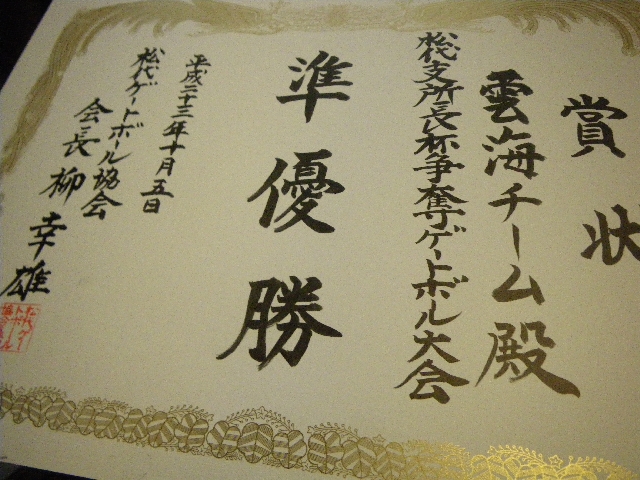 賞状
雲海チーム殿
松代支所長杯争奪ゲートボール大会
準優勝
平成二十三年十月五日
松代ゲートボール協会
会長 柳幸雄